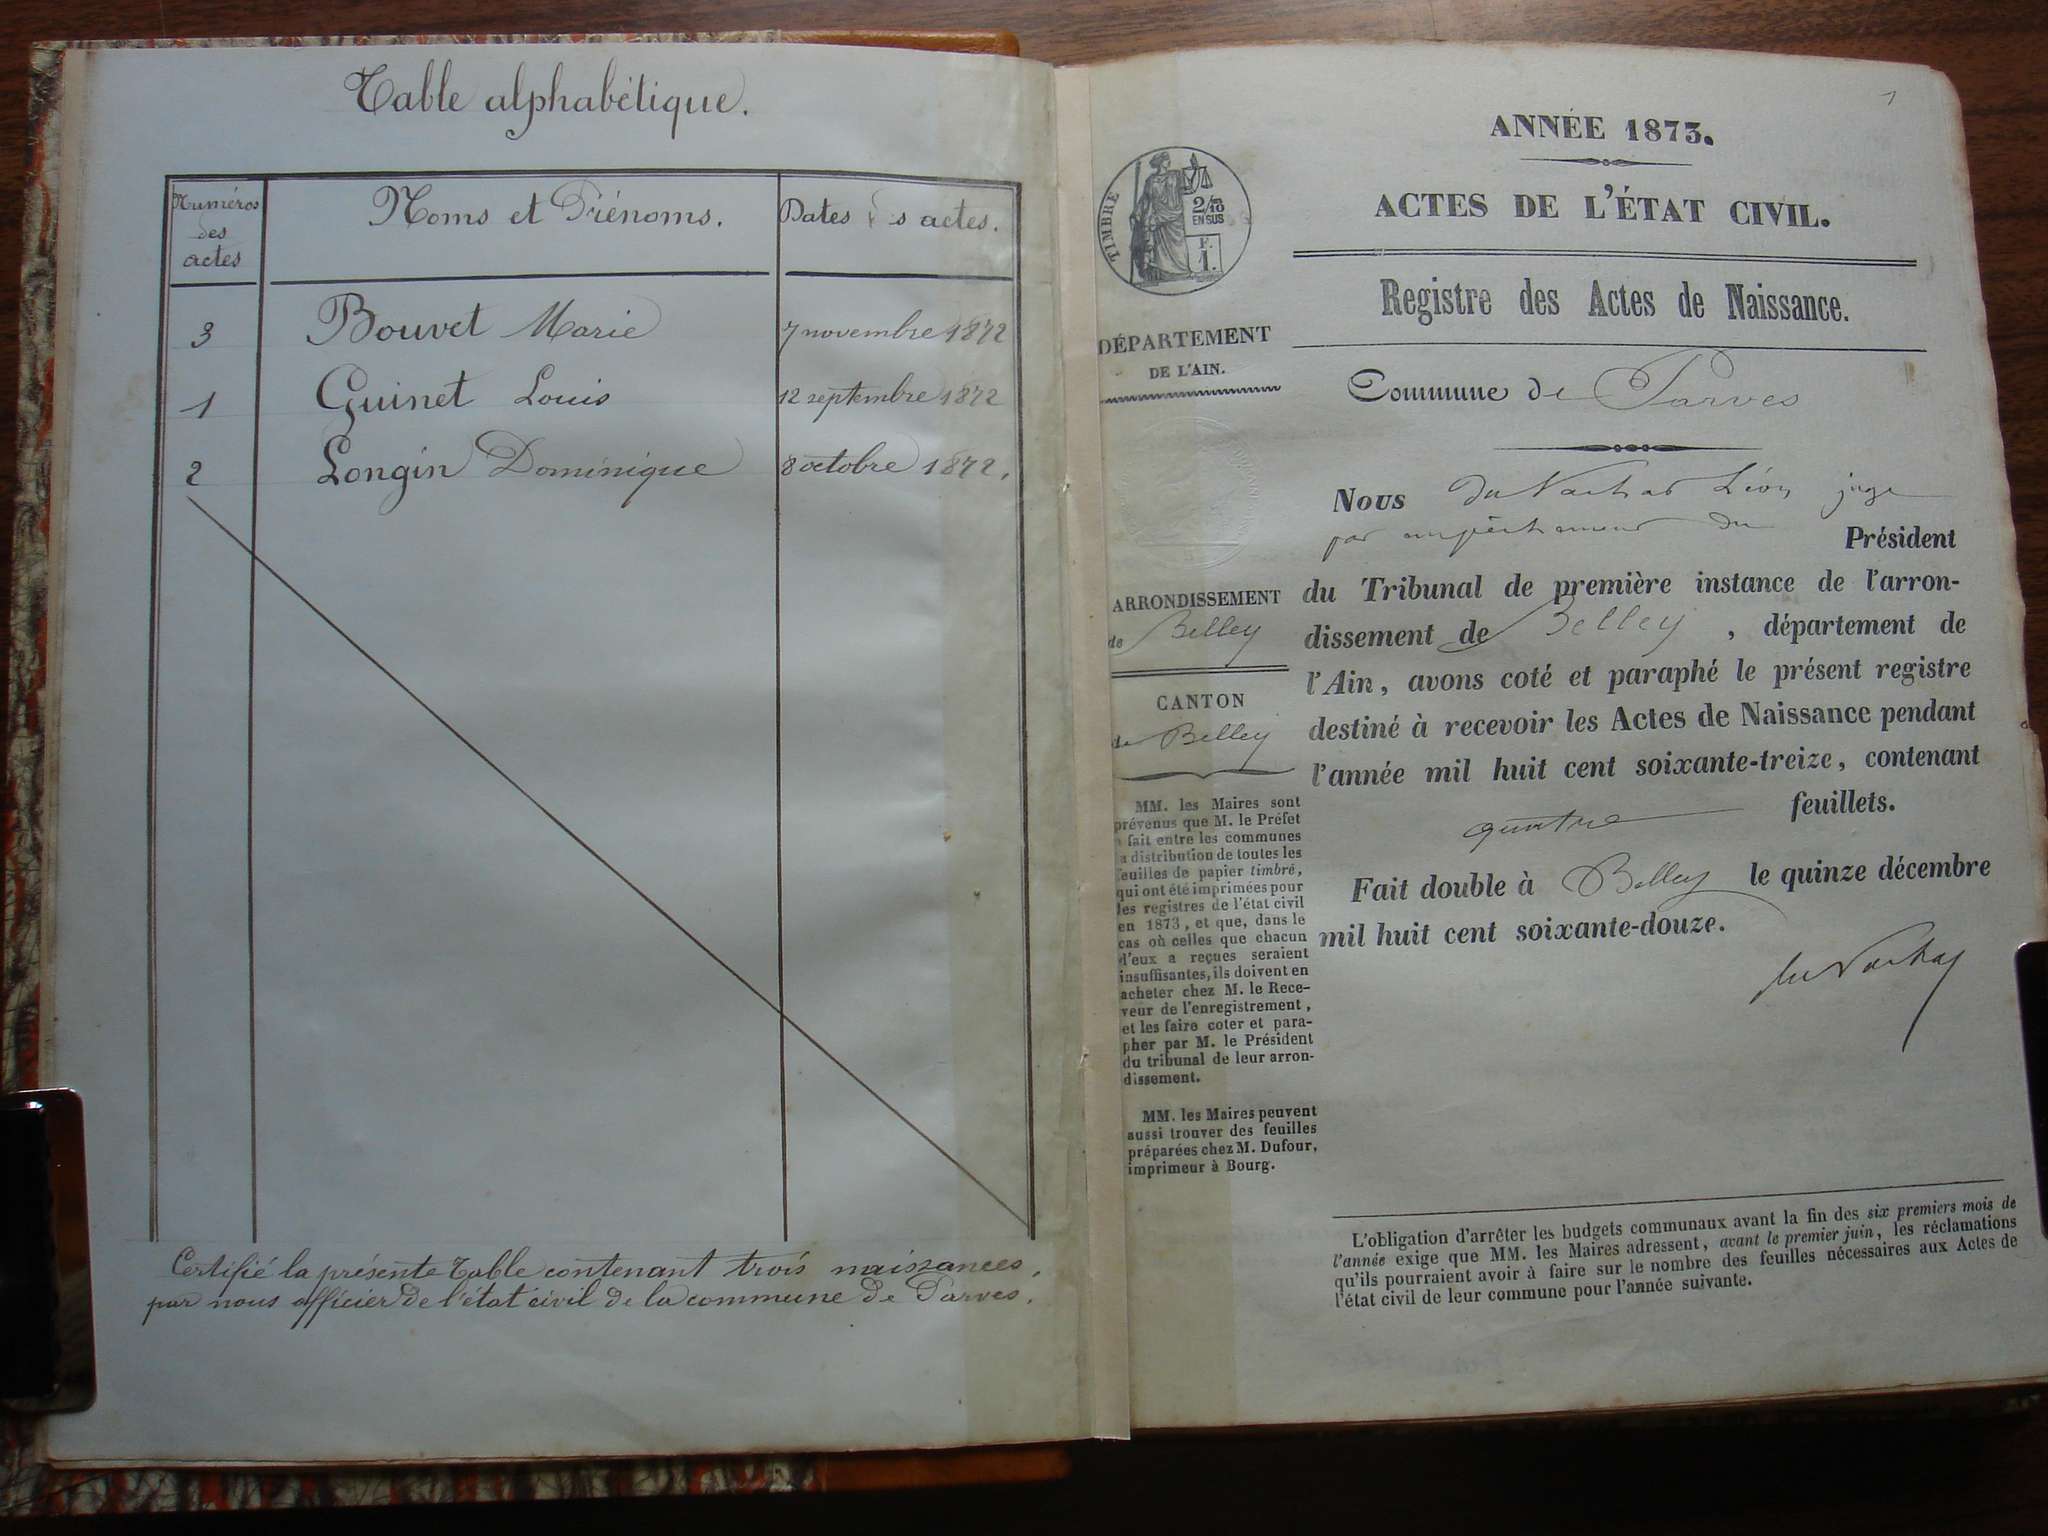 Table alphabétique.
Numéros
des
actes
Noms et Prénoms.
Dates s actes.
3 Bouvet Marie 7 novembre 1872
1 Guinet Louis 12 septembre 1872
2 Longin Dominique 8 octobre 1872.
Certifié la présente Table contenant trois naissances,
par nous officier de l'état civil de la commune de Parves.
1
ANNÉE 1873.
ACTES DE L'ÉTAT CIVIL.
Registre des Actes de Naissance.
Commune de Parves
TIMBRE
2/10
EN SUS
F.
1.
DÉPARTEMENT
DE L'AIN.
ARRONDISSEMENT
de Belley
CANTON
de Belley
MM. les Maires sont
prévenus que M. le Préfet
a fait entre les communes
la distribution de toutes les
feuilles de papier timbré,
qui ont été imprimées pour
les registres de l'état civil
en 1873, et que, dans le
cas où celles que chacun
d'eux a reçues seraient
insuffisantes, ils doivent en
acheter chez M. le Rece-
veur de l'enregistrement,
et les faire coter et para-
pher par M. le Président
du tribunal de leur arron-
dissement.
MM. les Maires peuvent
aussi trouver des feuilles
préparées chez M. Dufour,
imprimeur à Bourg.
Nous Léon juge
par empêchement du Président
du Tribunal de première instance de l'arron-
dissement de Belley, département de
l'Ain, avons coté et paraphé le présent registre
destiné à recevoir les Actes de Naissance pendant
l'année mil huit cent soixante-treize, contenant
quatre feuillets.
Fait double à Belley le quinze décembre
mil huit cent soixante-douze.
L'obligation d'arrêter les budgets communaux avant la fin des six premiers mois de
l'année exige que MM. les Maires adressent, avant le premier juin, les réclamations
qu'ils pourraient avoir à faire sur le nombre des feuilles nécessaires aux Actes de
l'état civil de leur commune pour l'année suivante.